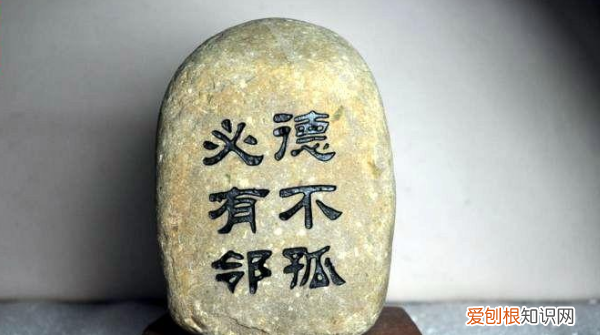 德不孤
必有邻
爱刨根知识网